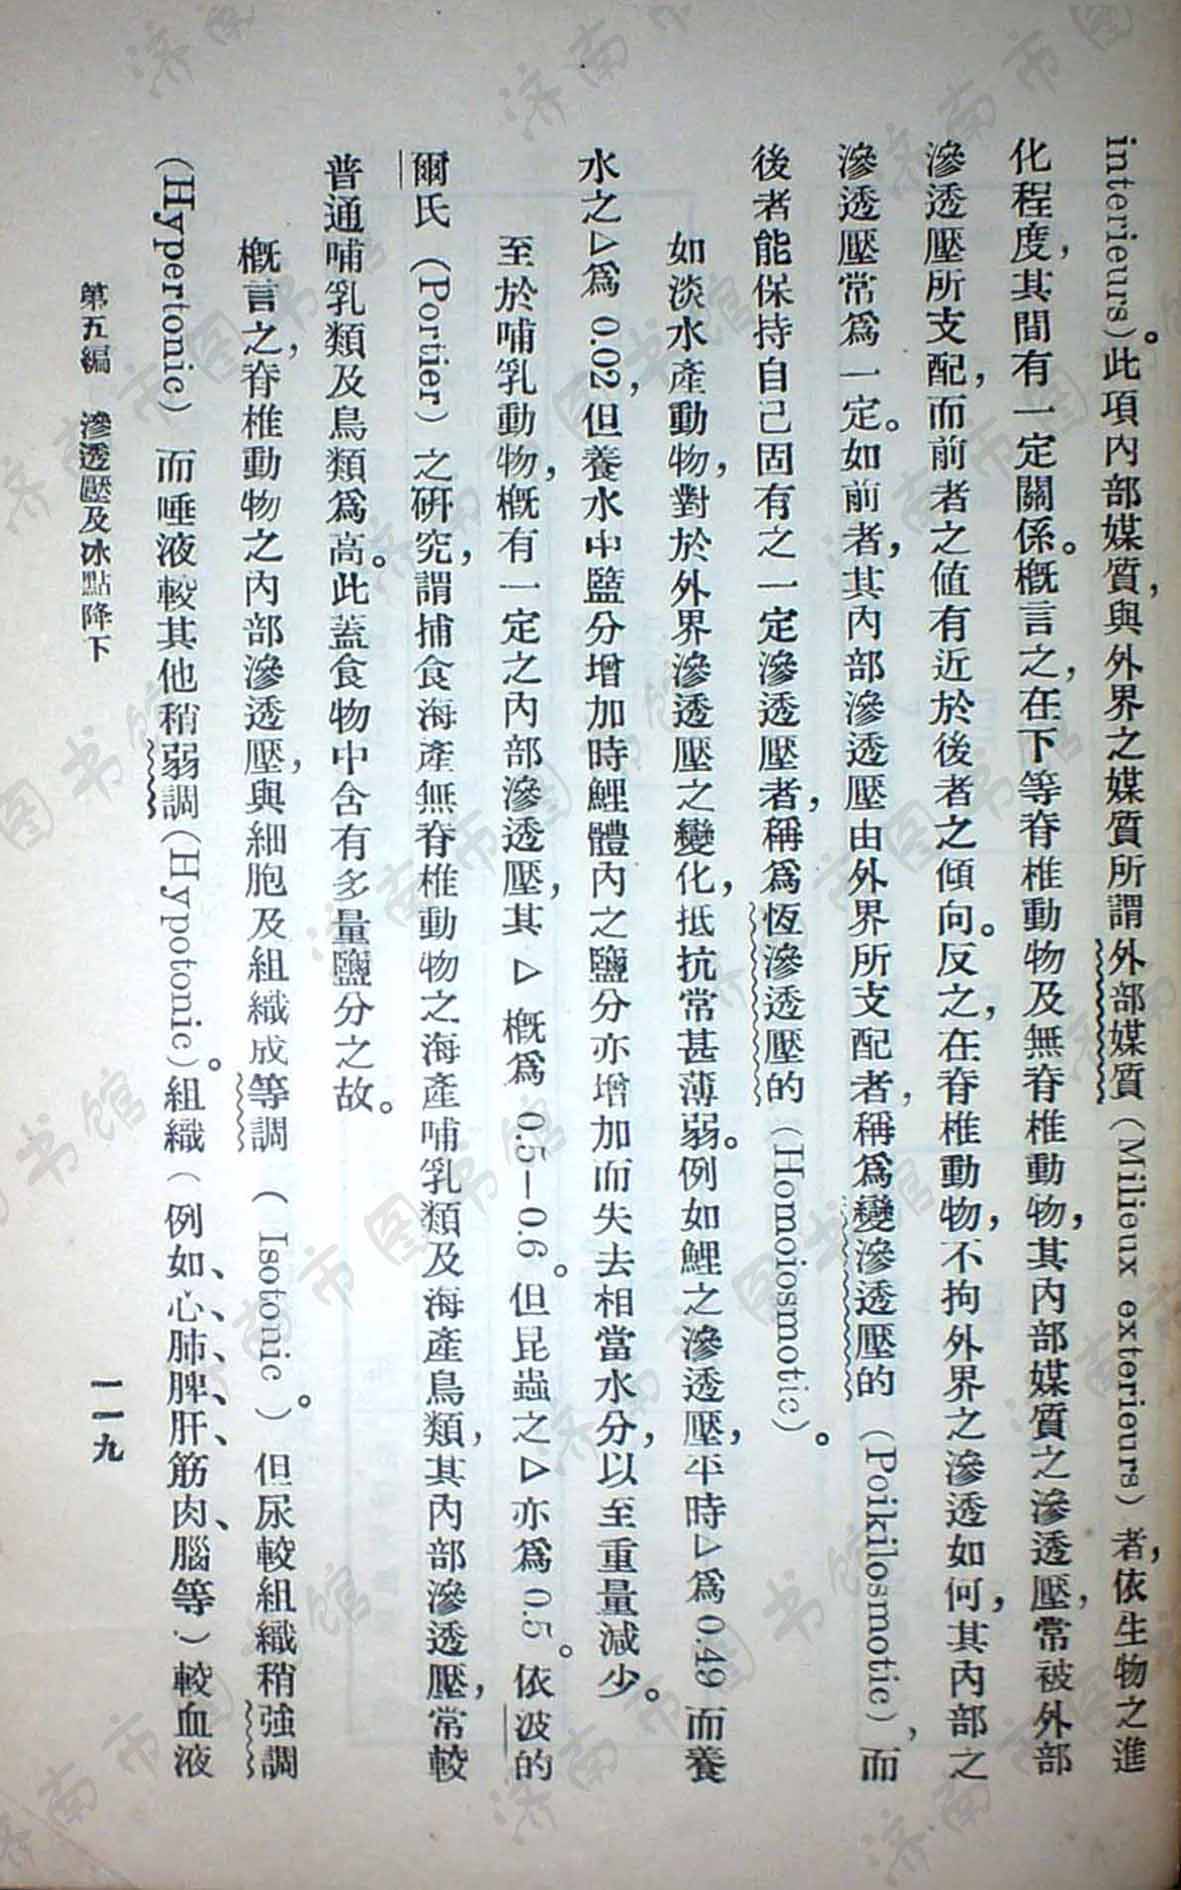 interieurs)。此項內部媒質，與外界之媒質所謂外部媒質（Milieux exteriours）者，依生物之進
化程度，其間有一定關係。概言之，在下等脊椎動物及無脊椎動物，其內部媒質之滲透壓，常被外部
滲透壓所支配，而前者之値有近於後者之傾向。反之，在脊椎動物，不拘外界之滲透如何，其內部之
滲透壓常爲一定。如前者，其內部滲透壓由外界所支配者，稱爲變滲透壓的（Poikilosmotic），而
後者能保持自己固有之一定滲透壓者，稱爲恆滲透壓的（Homoiosmotic）。
如淡水產動物，對於外界滲透壓之變化，抵抗常甚薄弱。例如鯉之滲透壓，平時△爲0.49而養
水之△爲0.02，但養水中鹽分增加時鯉體內之鹽分亦增加而失去相當水分，以至重量減少。
至於哺乳動物，概有一定之內部滲透壓，其△概爲0.5—0.6。但昆蟲之△亦爲0.5。依波的
爾氏（Portier）之研究，謂捕食海產無脊椎動物之海產哺乳類及海產鳥類，其內部滲透壓，常較
普通哺乳類及鳥類爲高。此蓋食物中含有多量鹽分之故。
概言之，脊椎動物之內部滲透壓，與細胞及組織成等調（Isotonic）。但尿較組織稍強調
（Hypertonic）而唾液較其他稍弱調（Hypotonic）。組織（例如、心、肺、脾、肝、筋肉、腦等）較血液
第五編　滲透壓及冰點降下
一一九
济南市图书馆